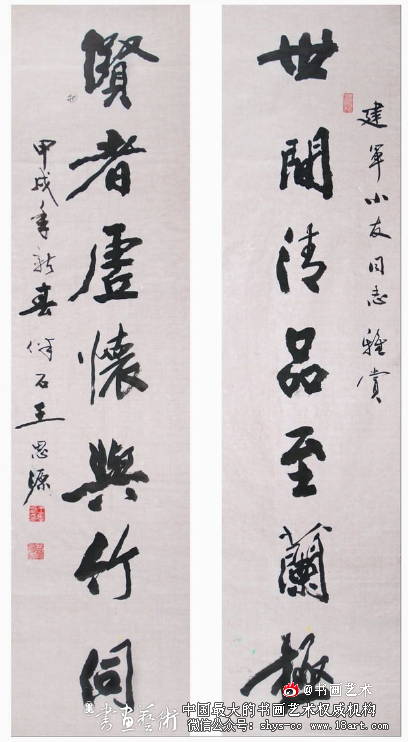 建軍小友同志雅賞
世間清品至蘭極
賢者虛懷與竹同
甲戌年新春伴石王思源
@书画艺术
書畫藝術
中国最大的书画艺术权威机构
微信公众号:shys-cc www.18art.com